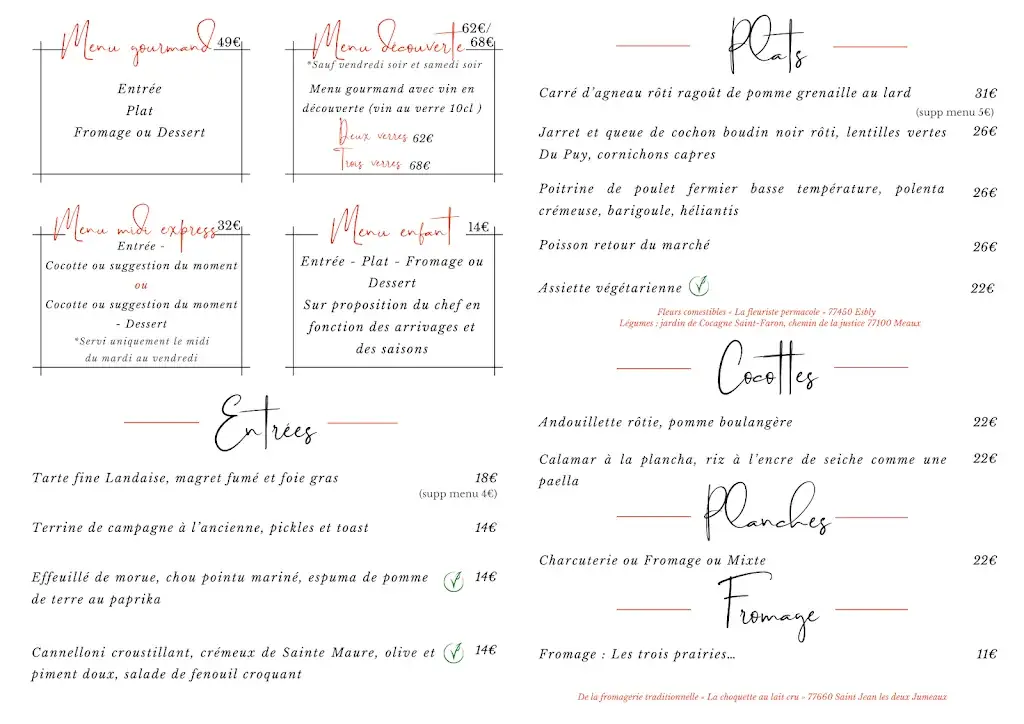 Menu gourmand 49€
Entrée
Plat
Fromage ou Dessert
Menu découverte 62€/
68€
*Sauf vendredi soir et samedi soir
Menu gourmand avec vin en
découverte (vin au verre 10cl )
Deux verres 62€
Trois verres 68€
Menu midi express 32€
Entrée -
Cocotte ou suggestion du moment
ou
Cocotte ou suggestion du moment
- Dessert
*Servi uniquement le midi
du mardi au vendredi
Menu enfant 14€
Entrée - Plat - Fromage ou
Dessert
Sur proposition du chef en
fonction des arrivages et
des saisons
Entrées
Tarte fine Landaise, magret fumé et foie gras 18€
(supp menu 4€)
Terrine de campagne à l'ancienne, pickles et toast 14€
Effeuillé de morue, chou pointu mariné, espuma de pomme 14€
de terre au paprika
Cannelloni croustillant, crémeux de Sainte Maure, olive et 14€
piment doux, salade de fenouil croquant
Plats
Carré d'agneau rôti ragoût de pomme grenaille au lard 31€
(supp menu 5€)
Jarret et queue de cochon boudin noir rôti, lentilles vertes 26€
Du Puy, cornichons capres
Poitrine de poulet fermier basse température, polenta 26€
crémeuse, barigoule, héliantis
Poisson retour du marché 26€
Assiette végétarienne 22€
Fleurs comestibles - La fleuriste permacole - 77450 Esbly
Légumes : jardin de Cocagne Saint-Faron, chemin de la justice 77100 Meaux
Cocottes
Andouillette rôtie, pomme boulangère 22€
Calamar à la plancha, riz à l'encre de seiche comme une 22€
paella
Planches
Charcuterie ou Fromage ou Mixte 22€
Fromage
Fromage : Les trois prairies… 11€
De la fromagerie traditionnelle - La choquette au lait cru - 77660 Saint Jean les deux Jumeaux